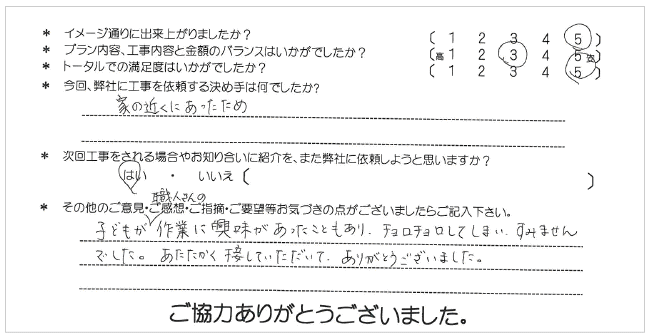 * イメージ通りに出来上がりましたか? ( 1 2 3 4 5 )
* プラン内容、工事内容と金額のバランスはいかがでしたか? (高 1 2 3 4 5 安)
* トータルでの満足度はいかがでしたか? ( 1 2 3 4 5 )
* 今回、弊社に工事を依頼する決め手は何でしたか?
家の近くにあったため
* 次回工事をされる場合やお知り合いに紹介を、また弊社に依頼しようと思いますか?
はい ・ いいえ ( )
* その他のご意見・ご感想・ご指摘・ご要望等お気づきの点がございましたらご記入下さい。
職人さんの
子どもが作業に興味があったこともあり、チョロチョロしてしまい、すみません
でした。 あたたかく接していただいて、ありがとうございました。
ご協力ありがとうございました。